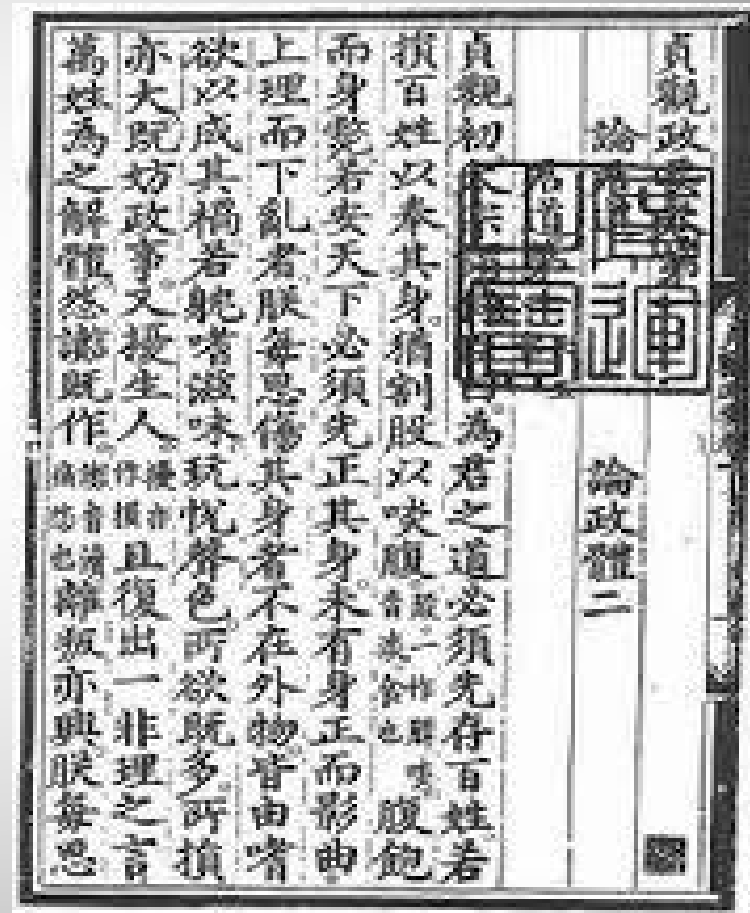 貞觀政
論 論政體二
貞觀初 為君之道必須先存百姓若
損百姓以奉其身猶割股以啖腹 腹飽
而身斃若安天下必須先正其身未有身正而影曲
上理而下亂者朕每思傷其身者不在外物皆由嗜
欲以成其禍若躭嗜滋味玩悅聲色所欲既多所損
亦大既妨政事又擾生人擾亦作損且復出一非理之言
萬姓為之解體怨讟既作 離叛亦興朕每思